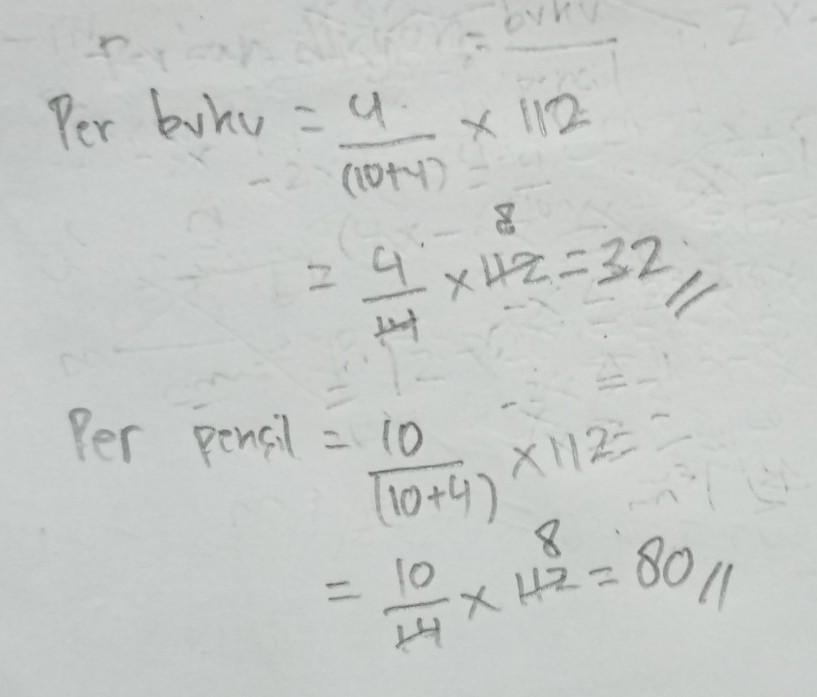 buku
Per buku = 4/(10+4) × 112
= 4/14 × 112 8 = 32 //
Per pensil = 10/(10+4) × 112 =
= 10/14 × 112 8 = 80 //